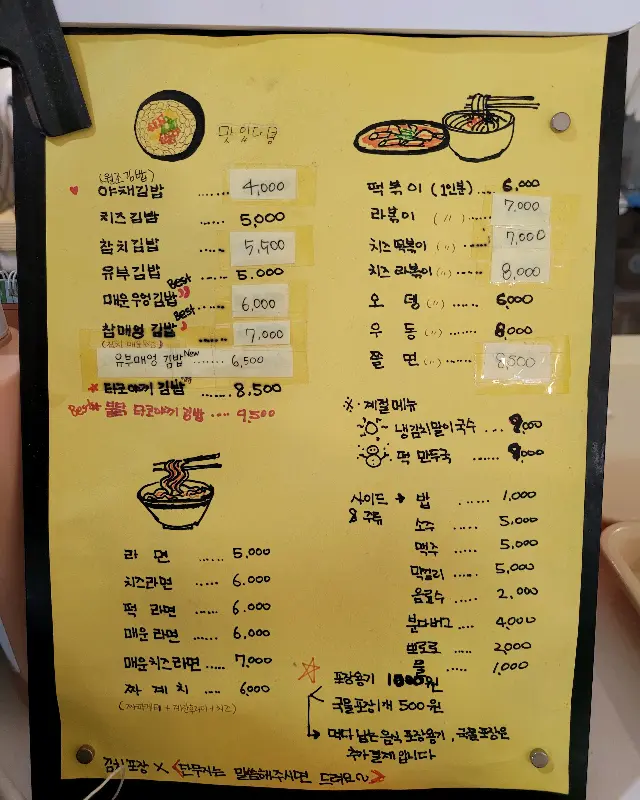 맛있다냠
(원조김밥)
♥ 야채김밥 ...... 4,000
치즈김밥 ...... 5,000
참치김밥 ...... 5,500
유부김밥 ...... 5.000
매운우엉김밥 Best ...... 6,000
참매엉 김밥 Best ...... 7,000
유부매엉 김밥 New ....... 6,500
타코야끼 김밥 ...... 8.500
Best 불닭 타코야끼 김밥 .... 9,500
라 면 ...... 5,000
치즈라면 ...... 6.000
떡 라면 ...... 6,000
매운라면 ...... 6,000
매운치즈라면 ..... 7,000
짜 계 치 .... 6,000
떡볶이 (1인분) ... 6,000
라볶이 (〃) .... 7,000
치즈떡볶이 (〃) .... 7,000
치즈 라볶이 (〃) ... 8,000
오 뎅 (〃) ...... 6,000
우 동 (〃) ...... 8,000
쫄 면 (〃) ...... 8,500
※. 계절메뉴
냉김치말이국수 ... 9,000
떡 만두국 ...... 9,000
사이드 → 밥 ...... 1,000
& 주류
소주 ..... 5,000
맥주 ..... 5,000
막걸리 .... 5,000
음료수 .... 2,000
분다버그 .... 4,000
뽀로로 ..... 2,000
물 ..... 1,000
포장용기 1000원
국물포장 1개 500원
먹다 남는 음식 포장용기, 국물포장은
추가결제입니다
김치포장 X <단무지는 말씀해주시면 드려요~>